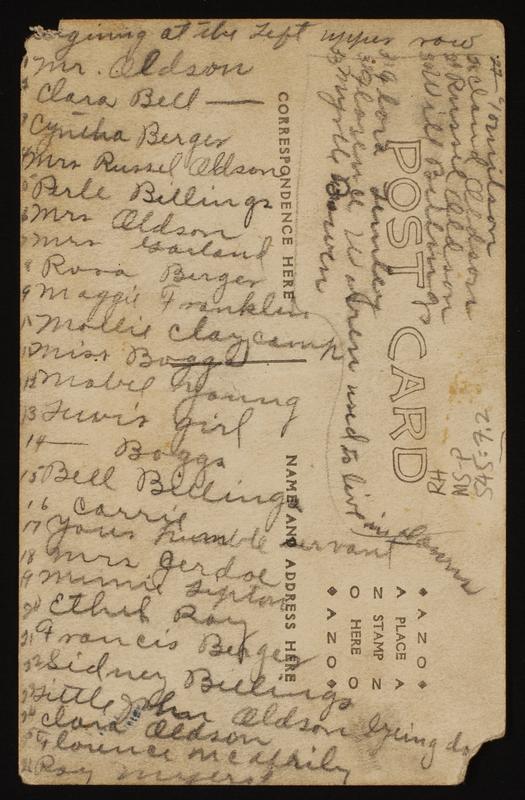 Begining at the Left upper row
1 Mr. Oldson
2 Clara Bell
3 Cyntha Berger
4 Mrs Russel Oldson
5 Perle Billings
6 Mrs Oldson
7 Mrs Garland
8 Rosa Berger
9 Maggie Franklin
10 Mollie Claycamp
11 Miss Boggs
12 Mabel Young
13 girl
14 — Boggs
15 Bell Billings
16 Carrie
17 Yours humble servant
18 Mrs Jerdoe
19 Minnie
20 Ethel Ray
21 Francis Berger
22 Sidney Billings
23 Little John Oldson lying down
24 Clara Oldson
25 Florence
26 Ray Myers
27 — Tompilson
Oldson
Russel Oldson
Will Billings
Flora
Florence Warren used to live in
Myrtle Bowen
POST CARD
CORRESPONDENCE HERE
NAME AND ADDRESS HERE
AZO
PLACE
STAMP
HERE
AZO
545:7.2
MS-P
PH